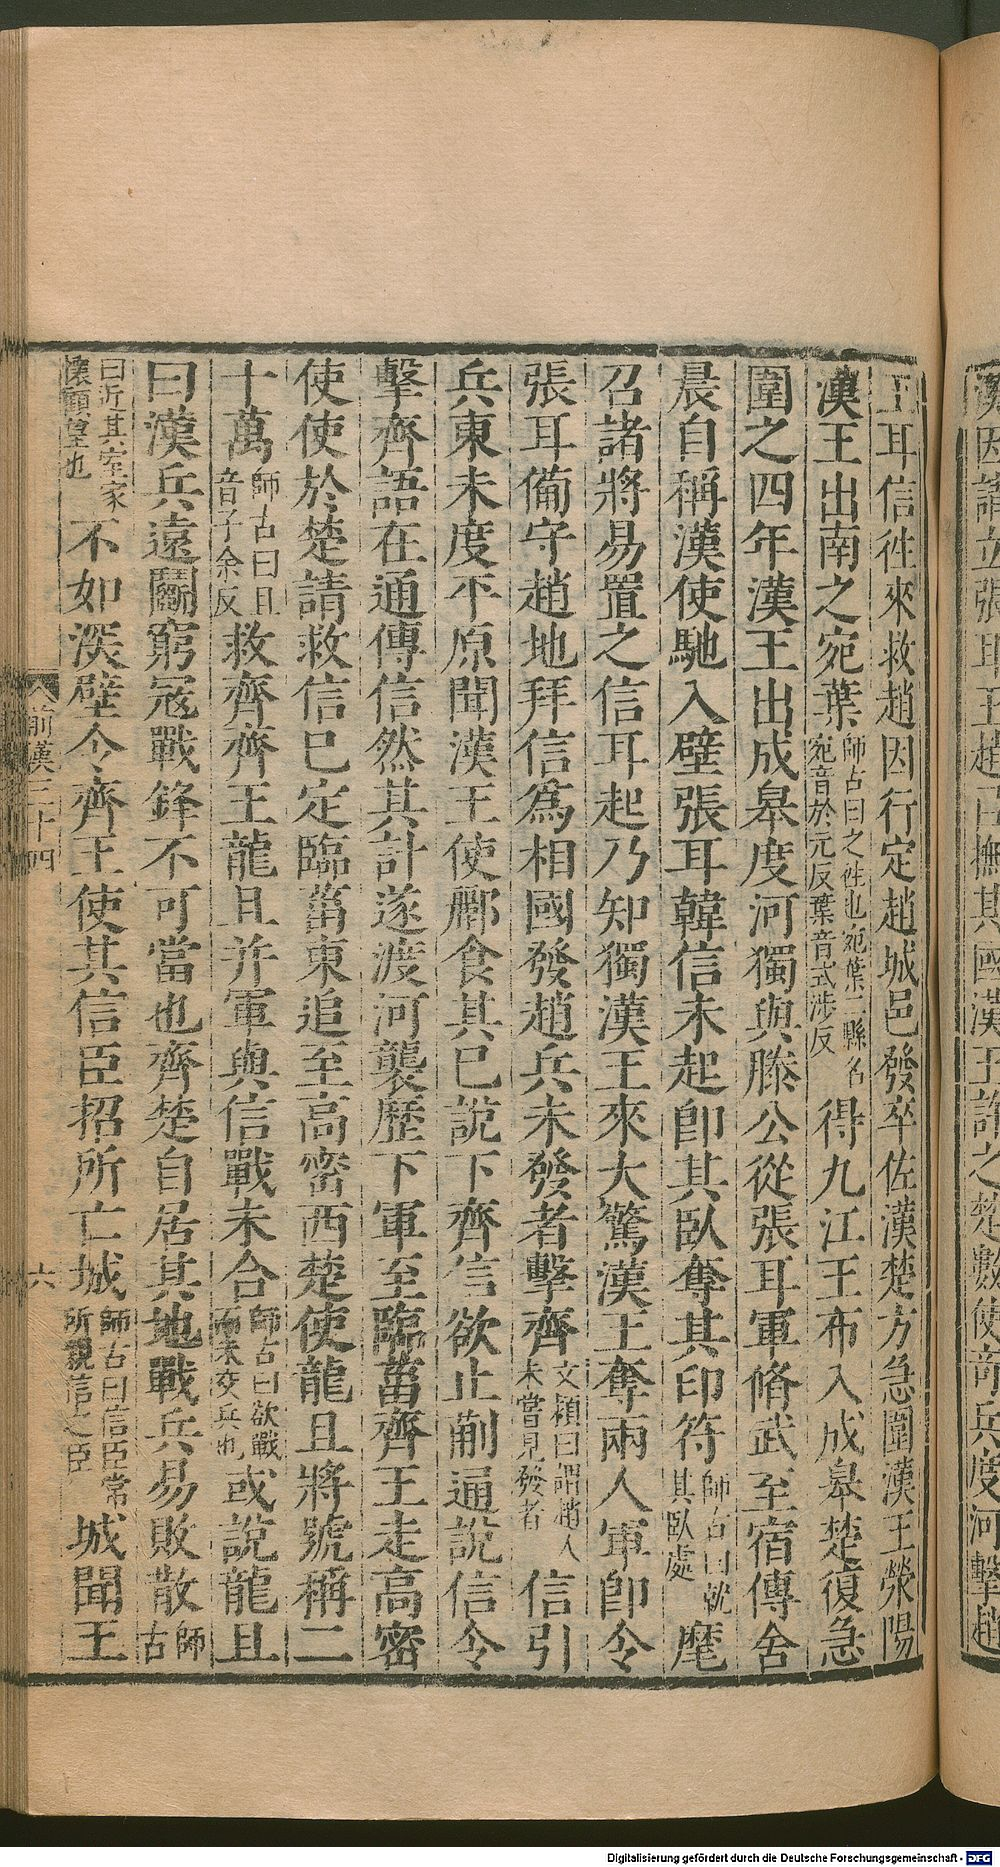 漢因請立張耳王趙以撫其國漢王許之楚數使奇兵度河擊趙
王耳信往來救趙因行定趙城邑發卒佐漢楚方急圍漢王滎陽
漢王出南之宛葉師古曰之往也宛葉二縣名宛音於元反葉音式涉反得九江王布入成皋楚復急
圍之四年漢王出成皋度河獨與滕公從張耳軍脩武至宿傳舍
晨自稱漢使馳入壁張耳韓信未起卽其臥奪其印符師古曰就其臥處麾
召諸將易置之信耳起乃知獨漢王來大驚漢王奪兩人軍卽令
張耳備守趙地拜信爲相國發趙兵未發者擊齊文穎曰謂趙人未嘗見發者信引
兵東未度平原聞漢王使酈食其已說下齊信欲止蒯通說信令
擊齊語在通傳信然其計遂渡河襲歷下軍至臨菑齊王走高密
使使於楚請救信已定臨菑東追至高密西楚使龍且將號稱二
十萬師古曰且音子余反救齊齊王龍且并軍與信戰未合師古曰欲戰而未交兵也或說龍且
曰漢兵遠鬭窮寇戰鋒不可當也齊楚自居其地戰兵易敗散師古
曰近其室家懷顧望也不如深壁令齊王使其信臣招所亡城師古曰信臣常所親信之臣城聞王
前漢三十四
六
Digitalisierung gefördert durch die Deutsche Forschungsgemeinschaft - DFG